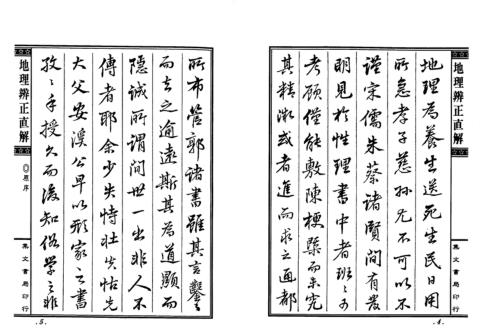 地理辨正直解
集文書局印行
.4.
地理為養生送死生民日用
所急孝子慈孫尤不可以不
謹宋儒朱蔡諸賢間有發
明見於性理書中者班〻可
考顧僅能敷陳梗槩而未究
其精微或者進而求之通都
所布管郭諸書雖其言鑿〻
而去之逾遠斯其為道顯而
隱誠所謂間世一出非人不
傳者耶余少失恃壯失怙先
大父安溪公早以形家之書
孜〻手授久而後知俗學之非
地理辨正直解
◎原序
集文書局印行
.5.